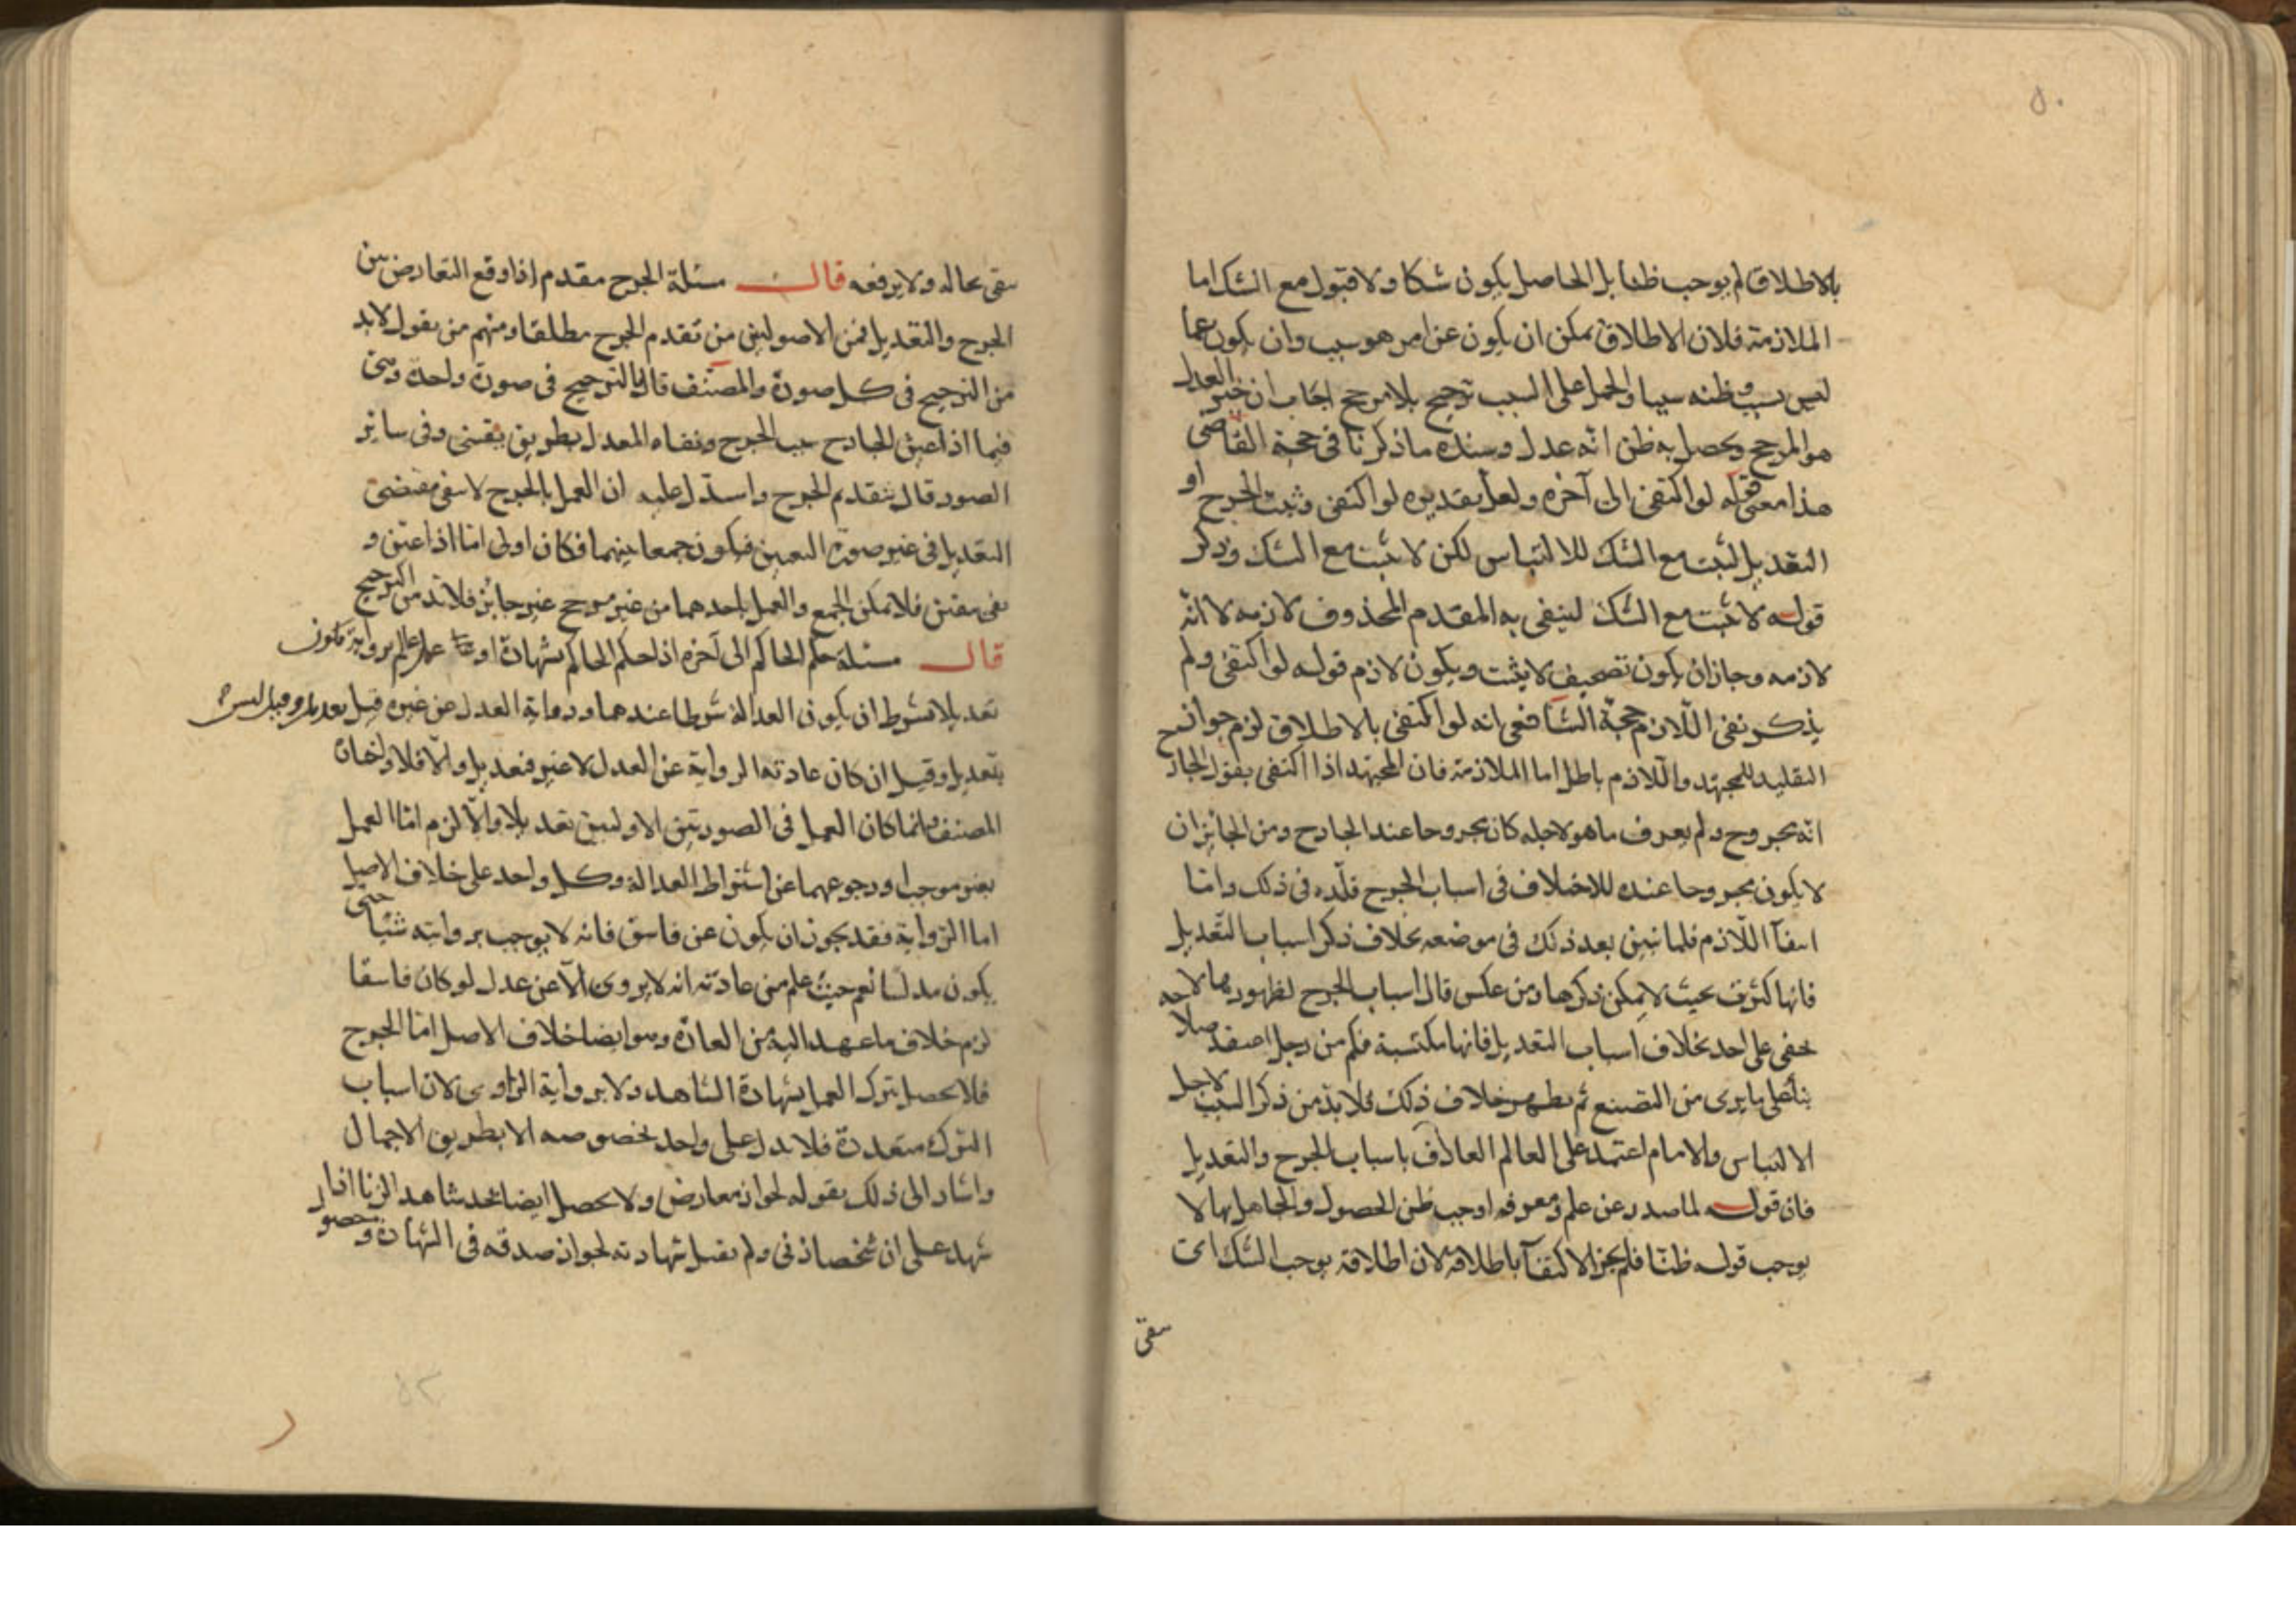 ٥٠
بالاطلاق لم يوجب ظنا بل الحاصل يكون شكا ولا قبول مع الشك اما
الملازمة فلان الاطلاق يمكن ان يكون عن امر هو سبب وان يكون عما
ليس بسبب وظنه سببا والحمل على السبب ترجيح بلا مرجح اجاب ان خبر العدل
هو المرجح ويحصل به ظن انه عدل وسنده ما ذكرنا في حجة القاضي
هذا معنى قوله لو اكتفى الى آخره ولعل تقديره لو اكتفى وثبت الجرح او
التعديل لثبت مع الشك للالتباس لكن لا يثبت مع الشك وذكر
قوله لا يثبت مع الشك لينفي به المقدم المحذوف لازمه لا انه
لازمه وجاز ان يكون تصحيف لا يثبت ويكون لازم قوله لو اكتفى ولم
يذكر نفي اللازم حجة الشافعي انه لو اكتفى بالاطلاق لزم جواز
التقليد للمجتهد واللازم باطل اما الملازمة فان المجتهد اذا اكتفى بقول الجارح
انه مجروح ولم يعرف ما هو لاجله كان مجروحا عند الجارح ومن الجائز ان
لا يكون مجروحا عنده للاختلاف في اسباب الجرح قلده في ذلك واما
انتفآ اللازم فلما تبين بعد ذلك في موضعه بخلاف ذكر اسباب التعديل
فانها كثرت بحيث لا يمكن ذكرها ومن عكس قال اسباب الجرح لظهورها لا
يخفى على احد بخلاف اسباب التعديل فانها مكتسبة فكم من رجل اعتقد
بناء على ما يرى من التصنع ثم يظهر خلاف ذلك فلا بد من ذكر السبب لاجل
الالتباس والامام اعتمد على العالم العارف باسباب الجرح والتعديل
فان قوله لما صدر عن علم ومعرفه اوجب ظن الحصول والجاهل بها لا
يوجب قوله ظنا فلم يجز الاكتفآ باطلاقه لان اطلاقه يوجب الشك اى
يبقى
يبقى بحاله ولا يرفعه قال مسئلة الجرح مقدم اذا وقع التعارض بين
الجرح والتعديل فمن الاصوليين من تقدم الجرح مطلقا ومنهم من يقول لا بد
من الترجيح في كل صورة والمصنف قال بالترجيح في صورة واحدة وهي
فيما اذا عين الجارح سبب الجرح ونفاه المعدل بطريق يقيني وفي سائر
الصور قال بتقديم الجرح واستدل عليه ان العمل بالجرح لا ينفي مقتضى
التعديل في غير صورة التعيين فيكون جمعا بينهما فكان اولى اما اذا عين و
نفى بيقين فلا يمكن الجمع والعمل باحدهما من غير مرجح غير جائز فلا بد من الترجيح
قال مسئلة حكم الحاكم الى آخره اذا حكم الحاكم بشهادة او عمل عالم برواية يكون
تعديلا بشرط ان يكون العدالة شرطا عندهما ورواية العدل عن غيره قيل تعديل وقيل ليس
بتعديل وقيل ان كان عادته الرواية عن العدل لا غير فتعديل والا فلا واختاره
المصنف وانما كان العمل في الصورتين الاوليين تعديلا والا لزم اما العمل
بغير موجب او رجوعهما عن اشتراط العدالة وكل واحد على خلاف الاصل
اما الرواية فقد يجوز ان يكون عن فاسق فانه لا يوجب بروايته شيئا حتى
يكون مدلسا نعم حيث علم من عادته انه لا يروى الا عن عدل لو كان فاسقا
لزم خلاف ما عهد اليه من العادة وهو ايضا خلاف الاصل اما الجرح
فلا يحصل بترك العمل بشهادة الشاهد ولا برواية الراوى لان اسباب
الترك متعددة فلا يدل على واحد بخصوصه الا بطريق الاجمال
واشار الى ذلك بقوله لجواز معارض ولا يحصل ايضا بحد شاهد الزنا اذا
شهد على ان شخصا زنى ولم يقبل شهادته لجواز صدقه في الشهادة وحصول